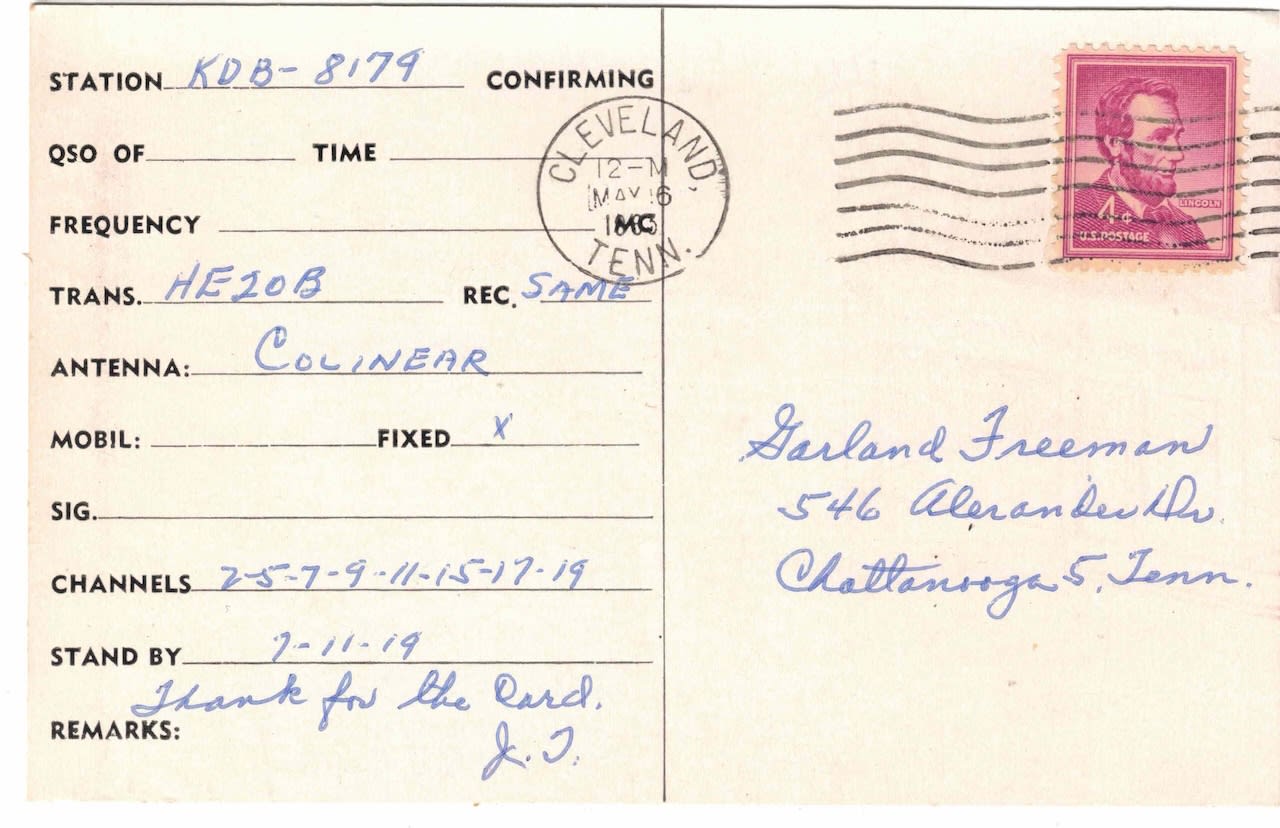 STATION KDB-8179 CONFIRMING
QSO OF TIME
FREQUENCY MC
TRANS. HE20B REC. SAME
ANTENNA: COLINEAR
MOBIL: FIXED X
SIG.
CHANNELS 2-5-7-9-11-15-17-19
STAND BY 7-11-19
Thank for the Card.
REMARKS: J.T.
CLEVELAND,
12-M
MAY 16
TENN.
LINCOLN
4¢
U.S. POSTAGE
Garland Freeman
546 Alexander Dr.
Chattanooga 5, Tenn.